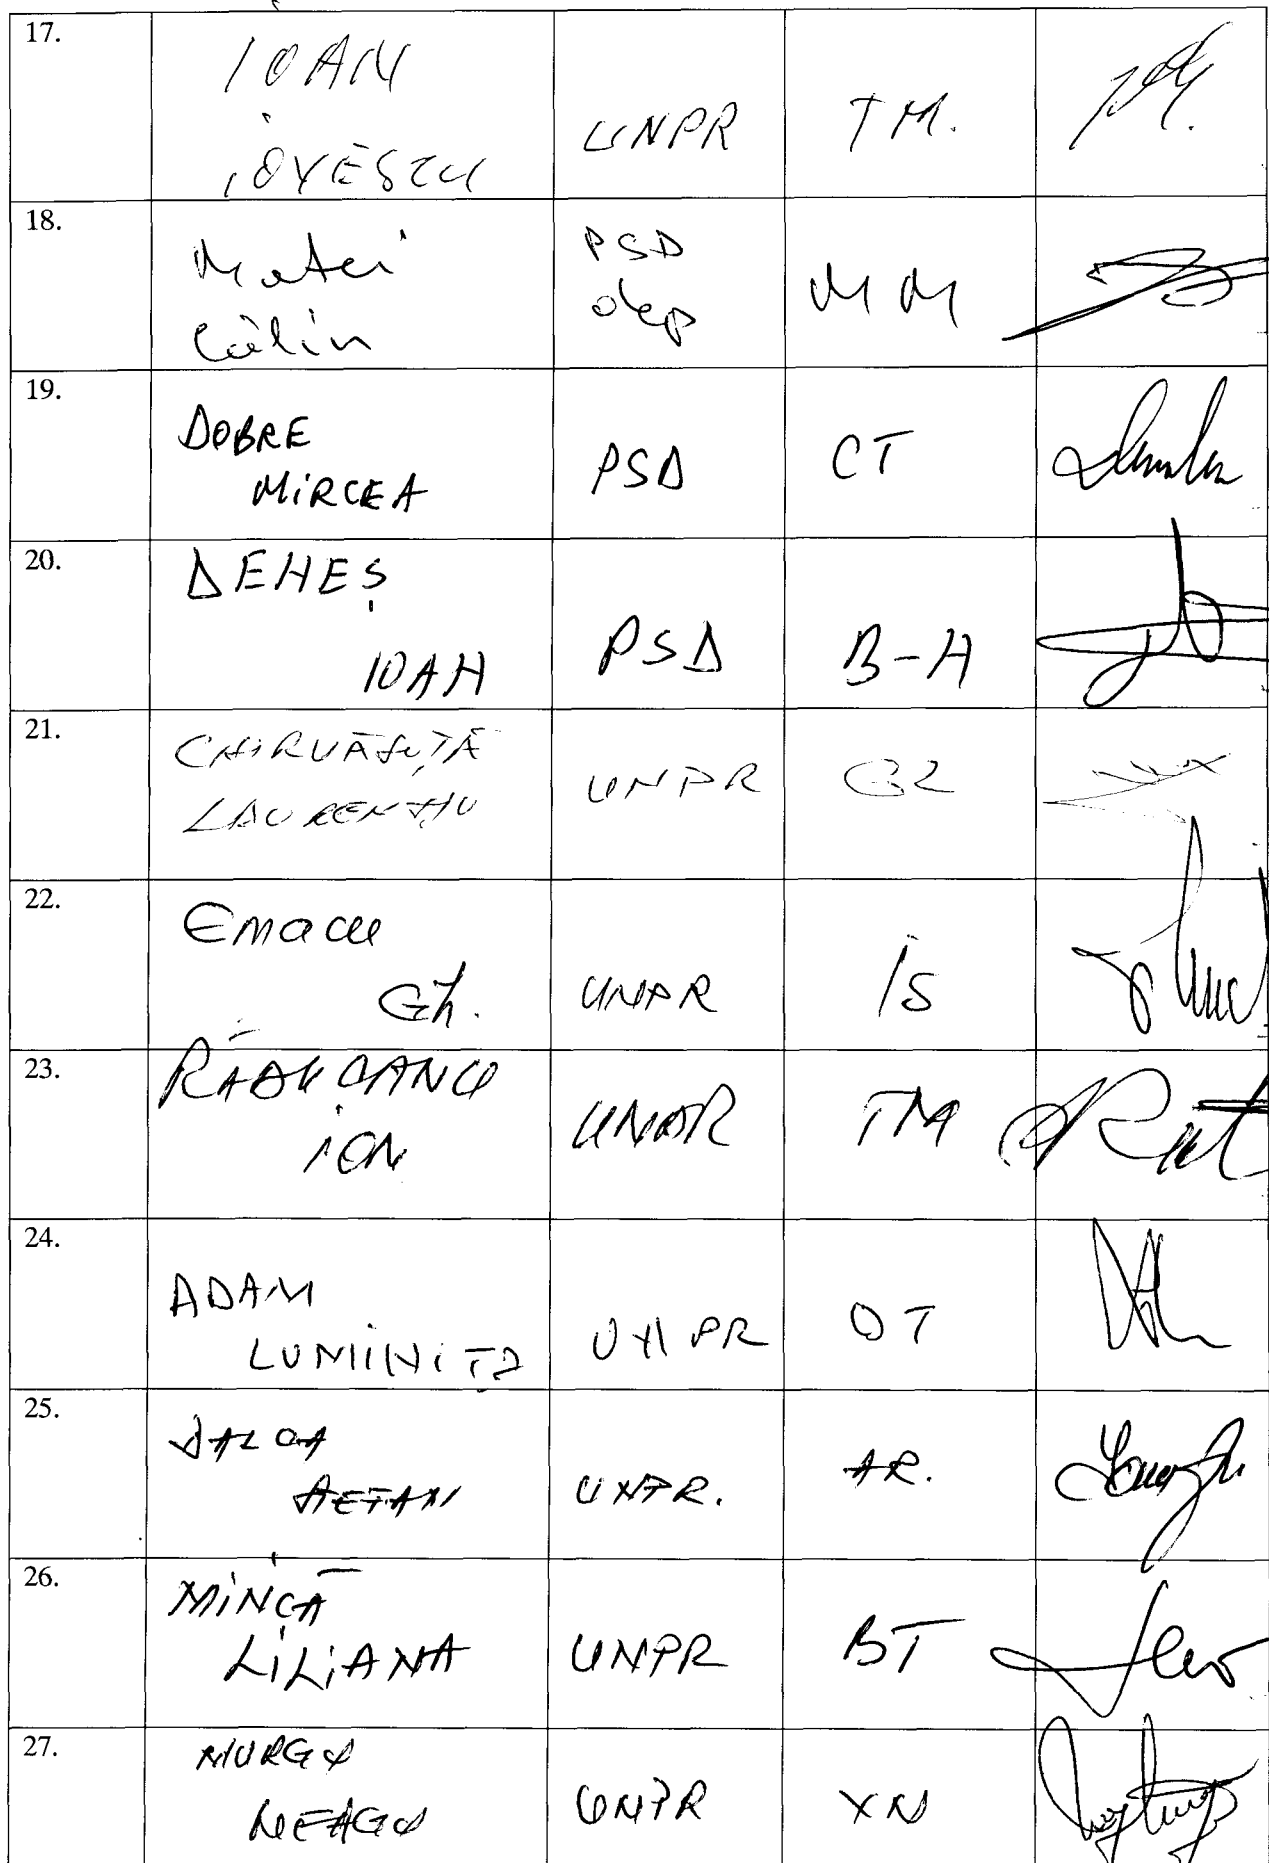 17.
IOAN
IOVESCU
UNPR
TM.
18.
Matei
Călin
PSD
dep
MM
19.
DOBRE
MIRCEA
PSD
CT
20.
DEHEȘ
IOAH
PSD
B-H
21.
CHIRVĂSUȚĂ
LAURENȚIU
UNPR
GL
22.
Emacu
Gh.
UNPR
IS
23.
RĂDUCANU
ION
UNPR
TM
24.
ADAM
LUMINIȚA
UNPR
OT
25.
UNPR.
AR.
26.
MINCĂ
LILIANA
UNPR
BT
27.
MURGU
NEAGU
UNPR